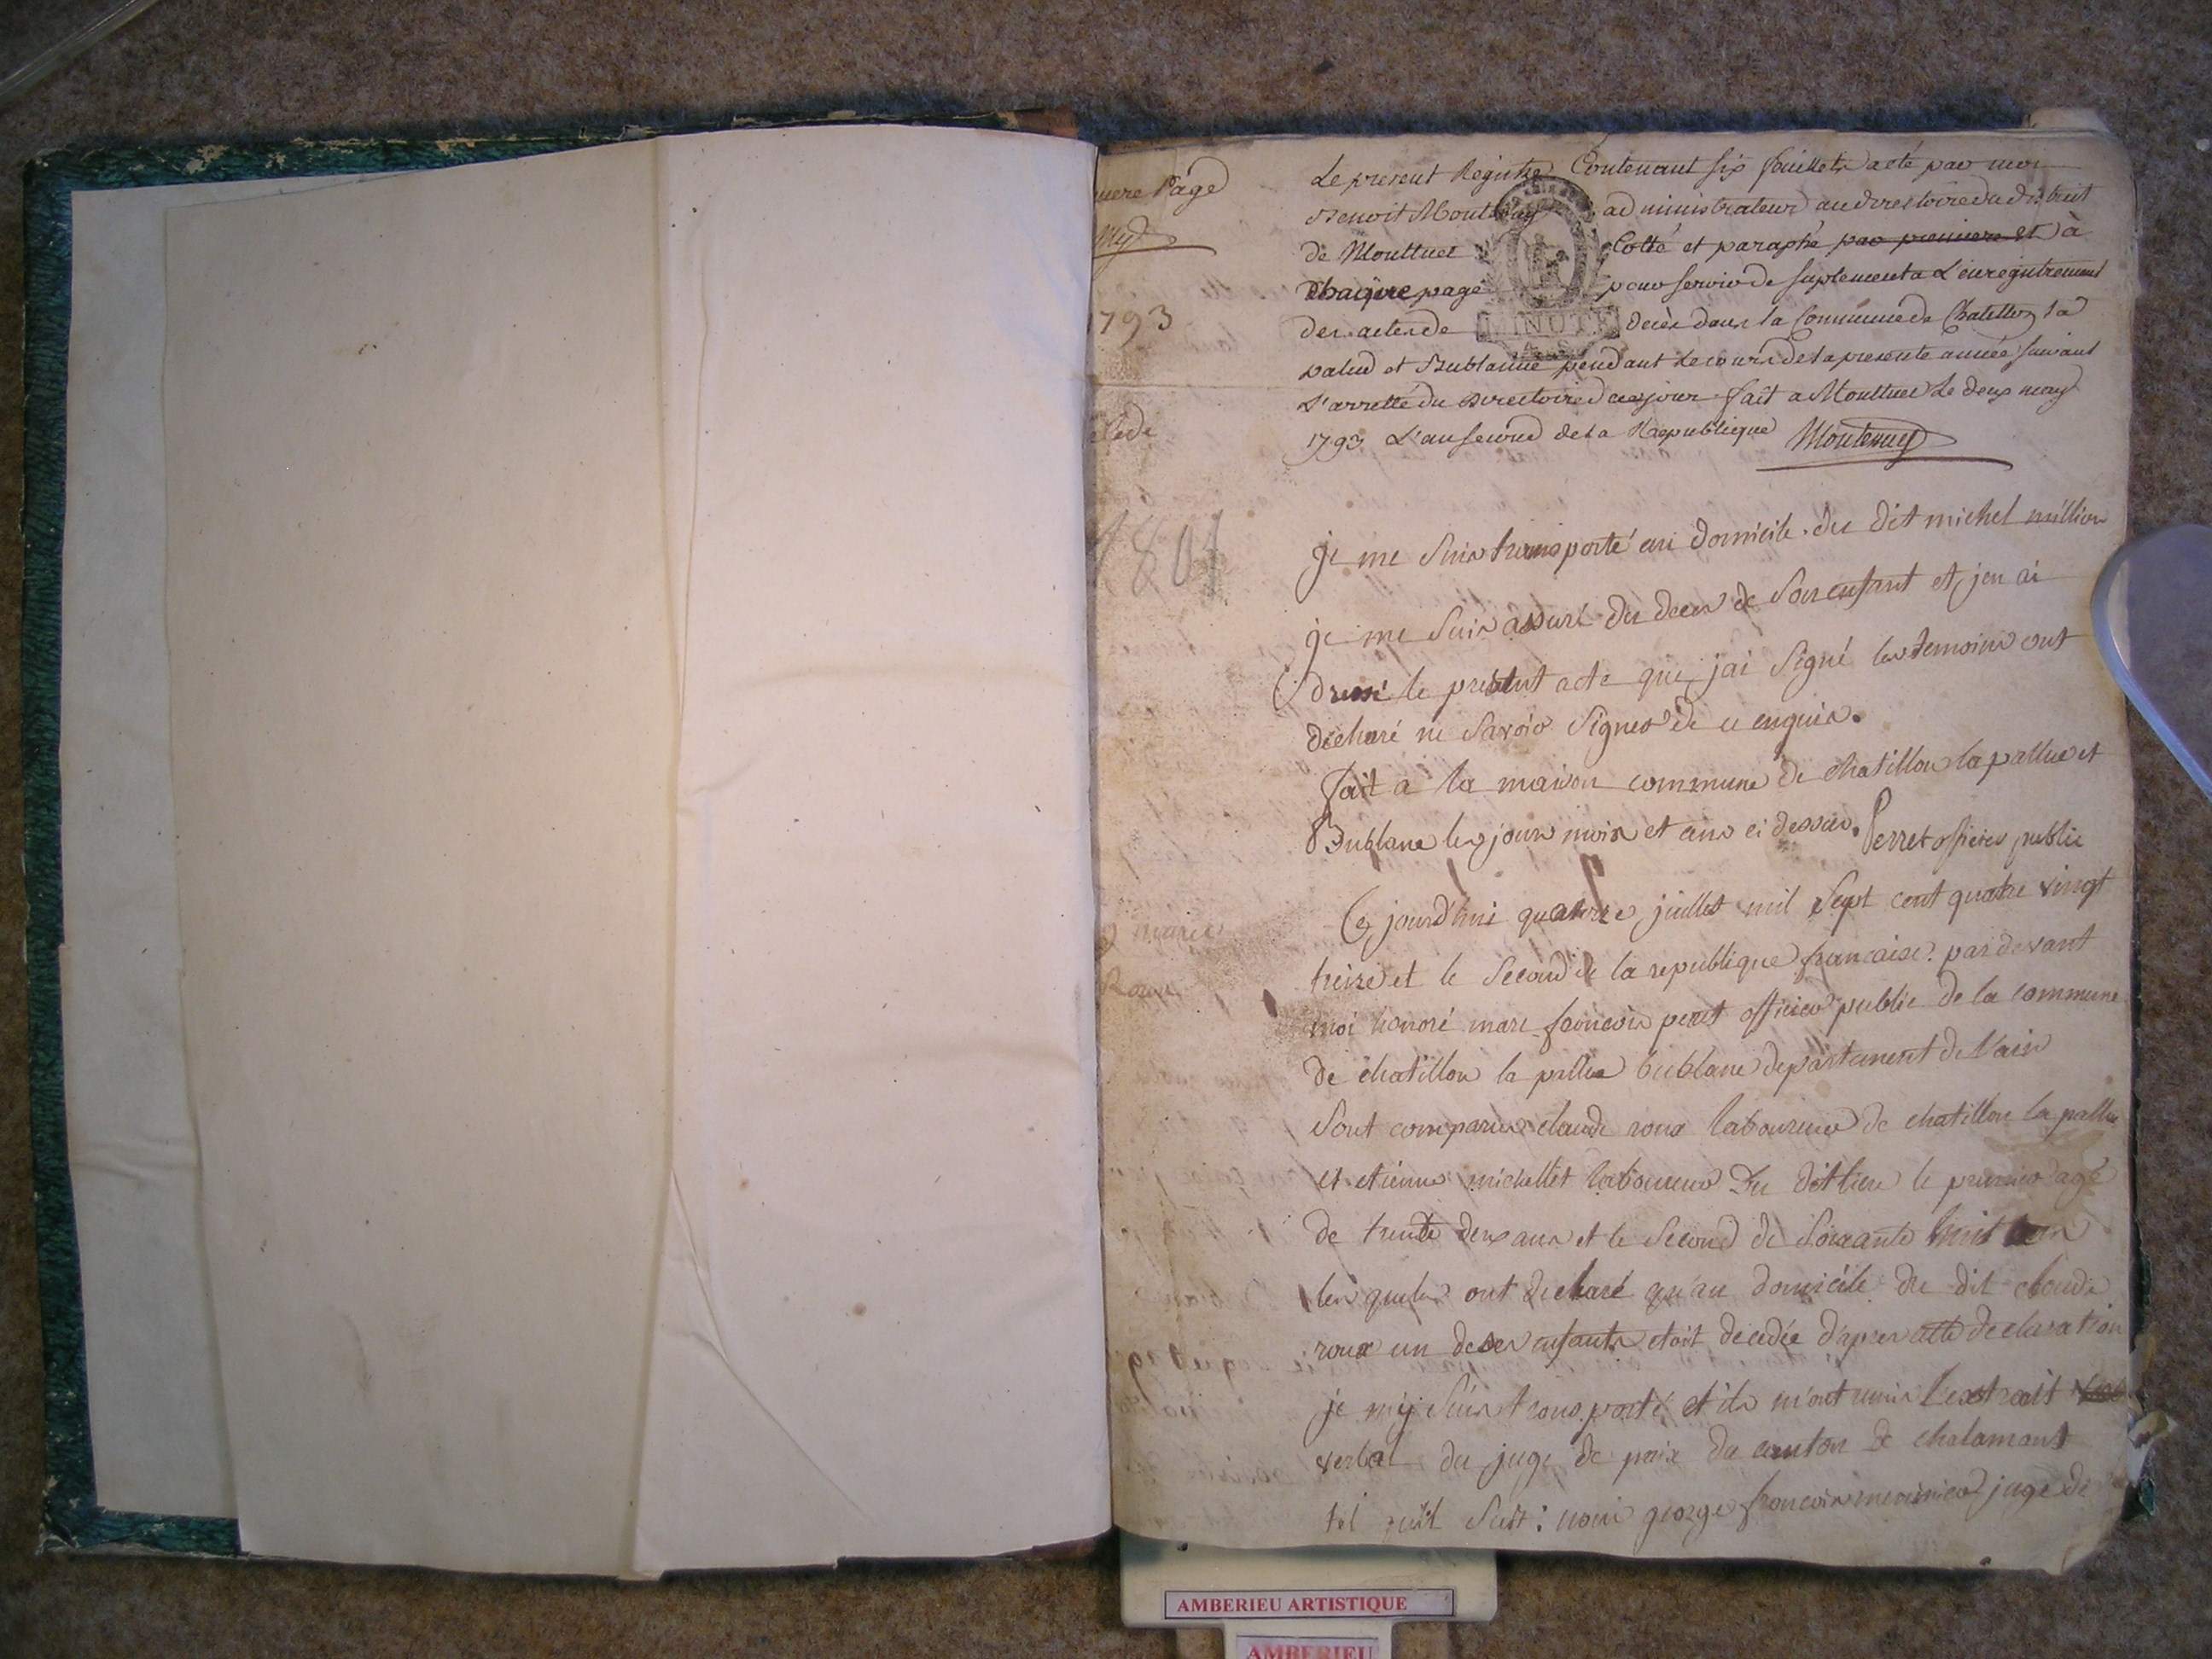 Page
1793
1801
Le present Registre Contenant six feuillets a été par moi
Benoit Montenuy administrateur au directoire du district
de Montluel Cotté et paraphé par premiere et à
Chaque page pour servir de suplement a L'enregistrement
des actes de decès dans la Commune de Chatillon la
palud et Bublanne pendant le cours de la presente année suivant
L'arretté du Directoire de ce jour fait a Montluel Le deux may
1793 L'an second de la Republique Montenuy
MINUTE
je me suis transporté au domicile du dit michel million
je me suis assuré du deces de son enfant et j'en ai
dressé le present acte que j'ai signé les temoins ont
declaré ne savoir signer de ce enquis.
fait a la maison commune de chatillon la pallue et
Bublane les jour mois et ans ci dessus. Perret officier public
marie
Roux
Ce jourd'hui quatorze juillet mil sept cent quatre vingt
treize et le second de la republique francaise pardevant
moi honoré marc francois perret officier public de la commune
de chatillon la pallue bublane departement de l'ain
sont comparus claude roux laboureur de chatillon la pallue
et etienne michellet laboureur du dit lieu le premier agé
de trente deux ans et le second de soixante huit ans
les quels ont declaré qu'au domicile du dit claude
roux un de ses enfants etoit decedée d'apres cette declaration
je m'y suis transporté et ils m'ont remis l'extrait
verbal du juge de paix du canton de chalamont
tel qu'il suit: nous george francois meunier juge de
AMBERIEU ARTISTIQUE
AMBERIEU